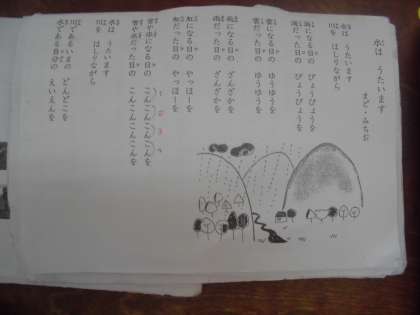 水は うたいます
まど・みちお
水は うたいます
川を はしりながら
海になる日の びょうびょうを
海だった日の びょうびょうを
雲になる日の ゆうゆうを
雲だった日の ゆうゆうを
雨になる日の ざんざかを
雨だった日の ざんざかを
虹になる日の やっほーを
虹だった日の やっほーを
雪や氷になる日の こんこんこんこんを
1 2 3 4
雪や氷だった日の こんこんこんこんを
水は うたいます
川を はしりながら
川であるいまの どんどこを
水である自分の えいえんを